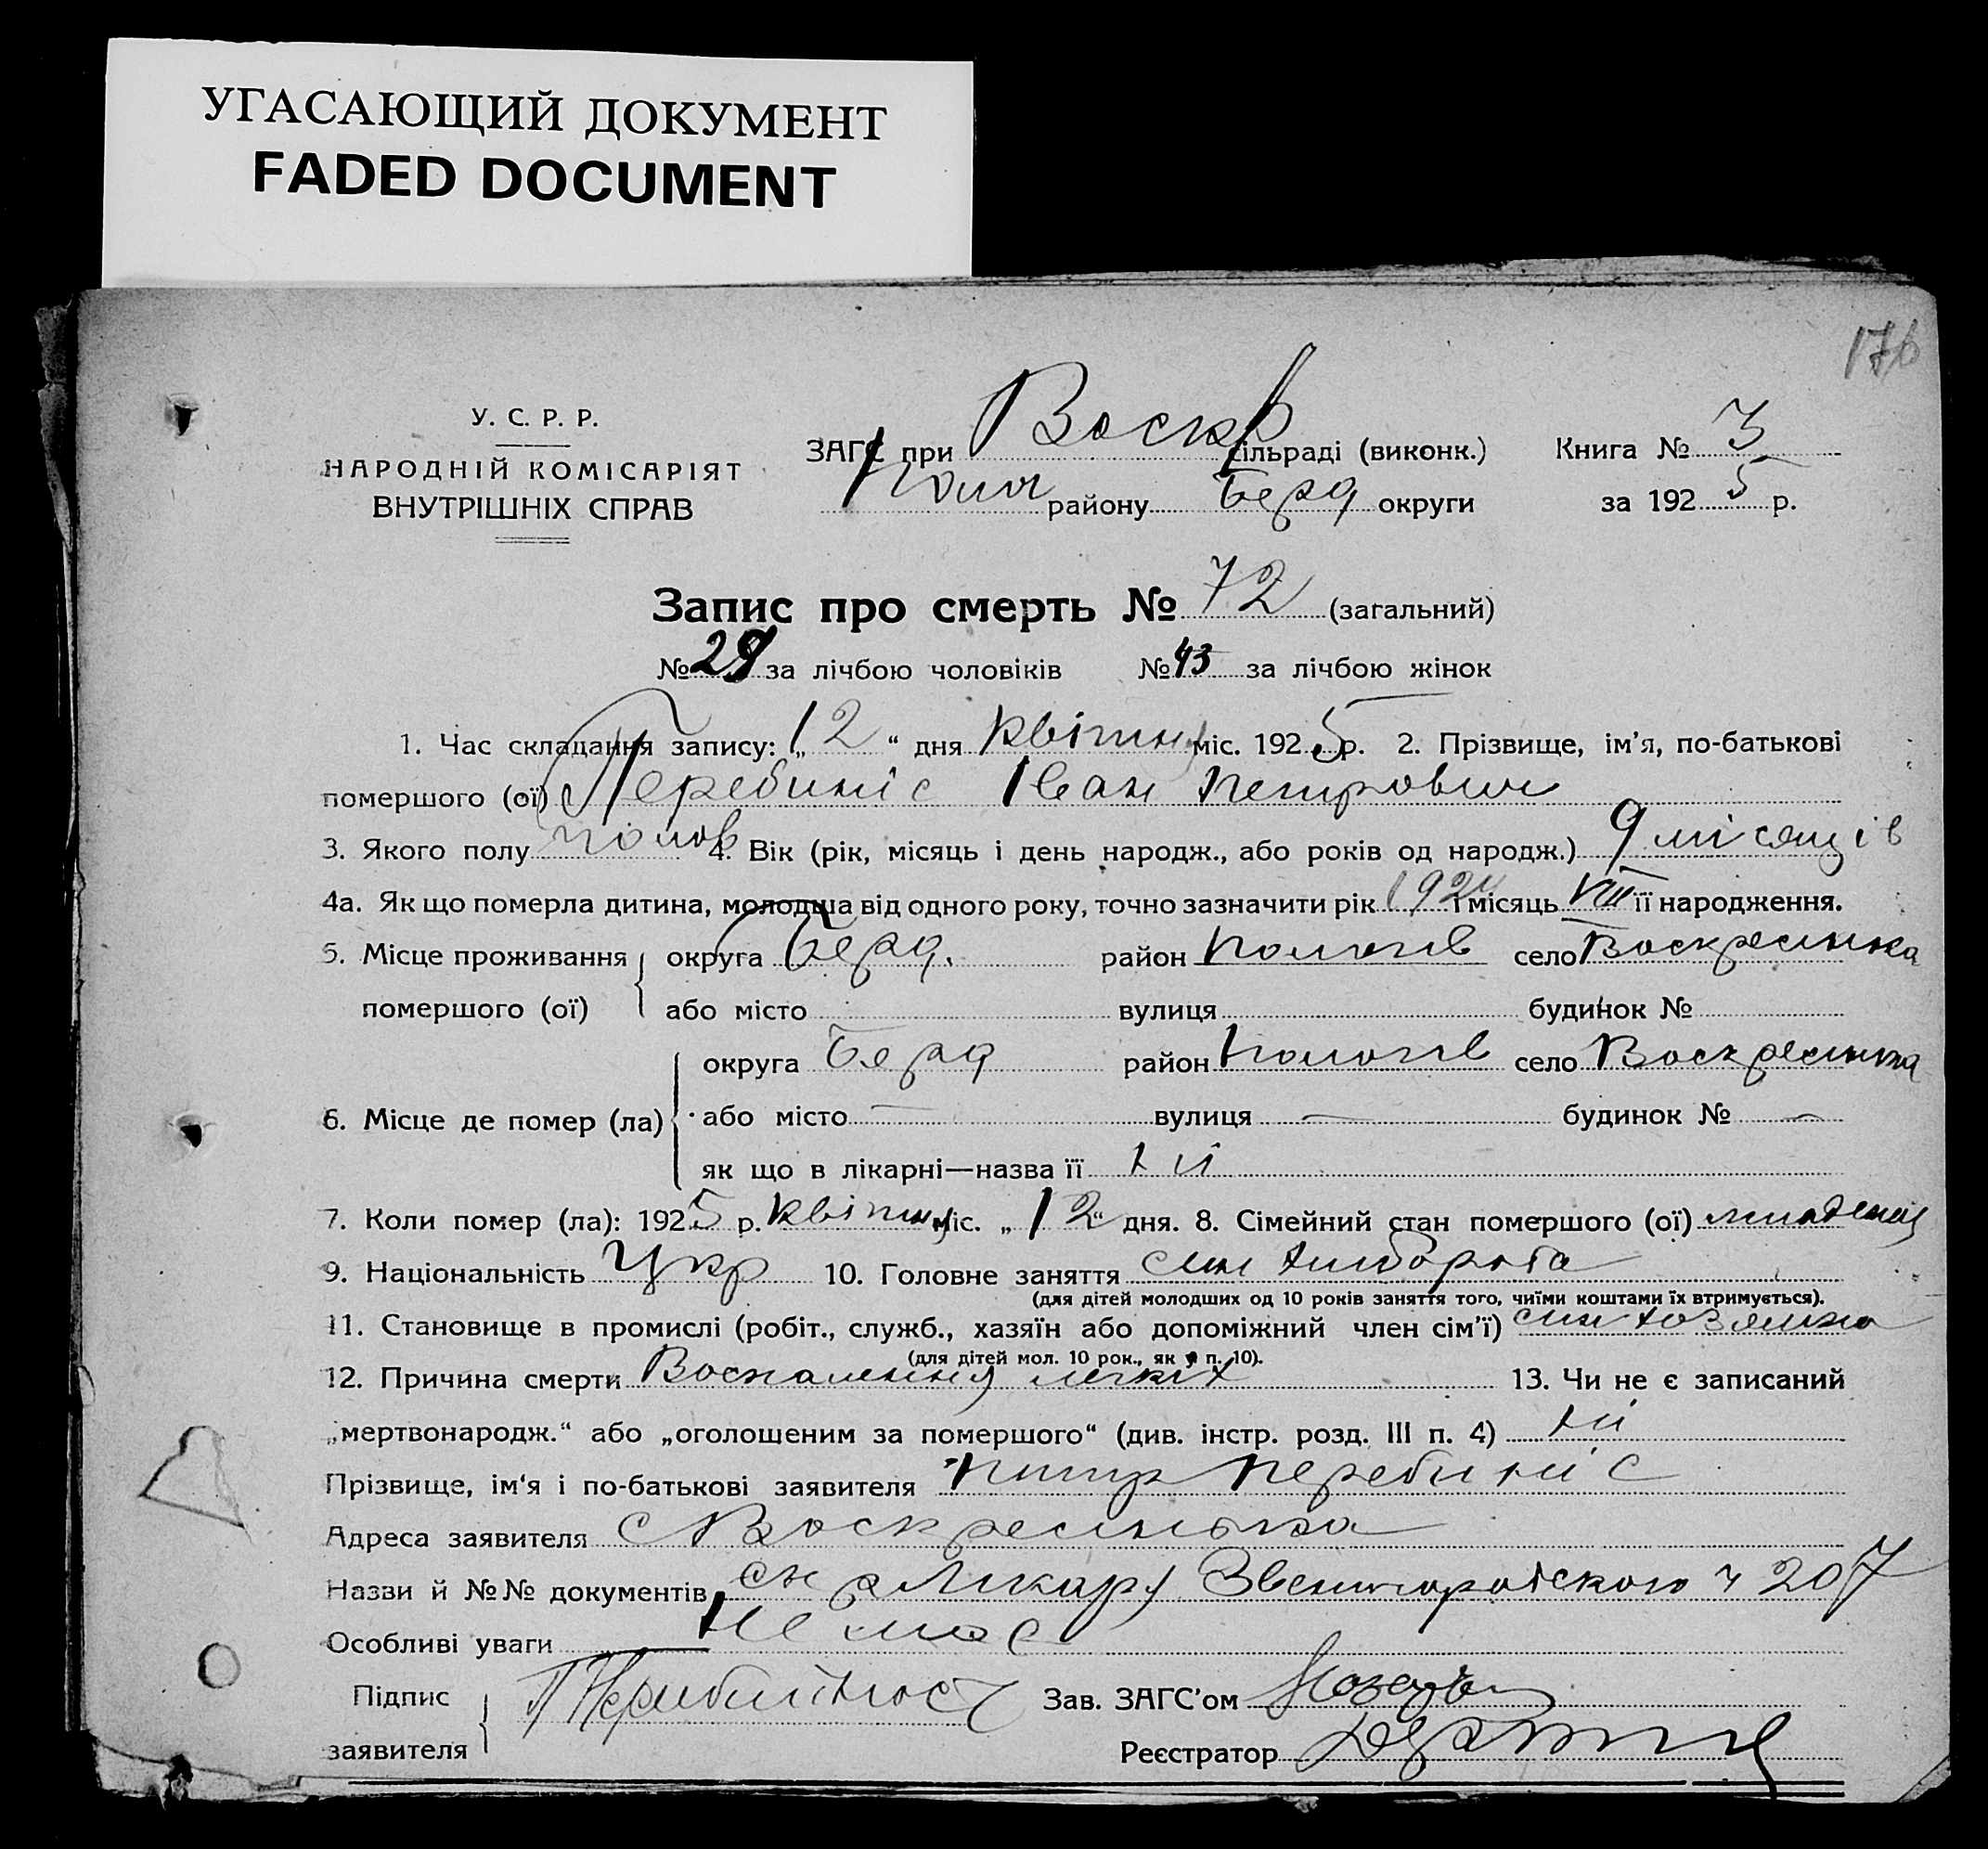 УГАСАЮЩИЙ ДОКУМЕНТ
FADED DOCUMENT
176
У. С. Р. Р.
НАРОДНІЙ КОМІСАРІЯТ
ВНУТРІШНІХ СПРАВ
ЗАГС при Воскр сільраді (виконк.)
Полог району Берд округи
Книга № 3
за 1925 р.
Запис про смерть № 72 (загальний)
№ 29 за лічбою чоловіків № 43 за лічбою жінок
1. Час складання запису: „12“ дня квітня міс. 1925 р. 2. Прізвище, ім'я, по-батькові
помершого (ої) Перебиніс Іван Петрович
3. Якого полу чолов 4. Вік (рік, місяць і день народж., або років од народж.) 9 місяців
4а. Як що померла дитина, молодша від одного року, точно зазначити рік 1924 і місяць VIII її народження.
5. Місце проживання помершого (ої) округа Берд. район Пологів село Воскресенка
або місто вулиця будинок №
6. Місце де помер (ла) округа Берд район Пологів село Воскресенка
або місто — вулиця — будинок № —
як що в лікарні—назва її ні
7. Коли помер (ла): 1925 р. квітня міс. „12“ дня. 8. Сімейний стан помершого (ої) младенец
9. Національність Укр 10. Головне заняття син хлібороба
(для дітей молодших од 10 років заняття того, чиїми коштами їх втримується).
11. Становище в промислі (робіт., служб., хазяїн або допоміжний член сім'ї) син хозяина
(для дітей мол. 10 рок., як у п. 10).
12. Причина смерти Воспаления легких 13. Чи не є записаний
„мертвонародж.“ або „оголошеним за помершого“ (див. інстр. розд. III п. 4) ні
Прізвище, ім'я і по-батькові заявителя Петр Перебиніс
Адреса заявителя с Воскресенка
Назви й №№ документів Лікаря Звенигородского ч 207
Особливі уваги не має
Підпис заявителя
Зав. ЗАГС'ом
Реєстратор